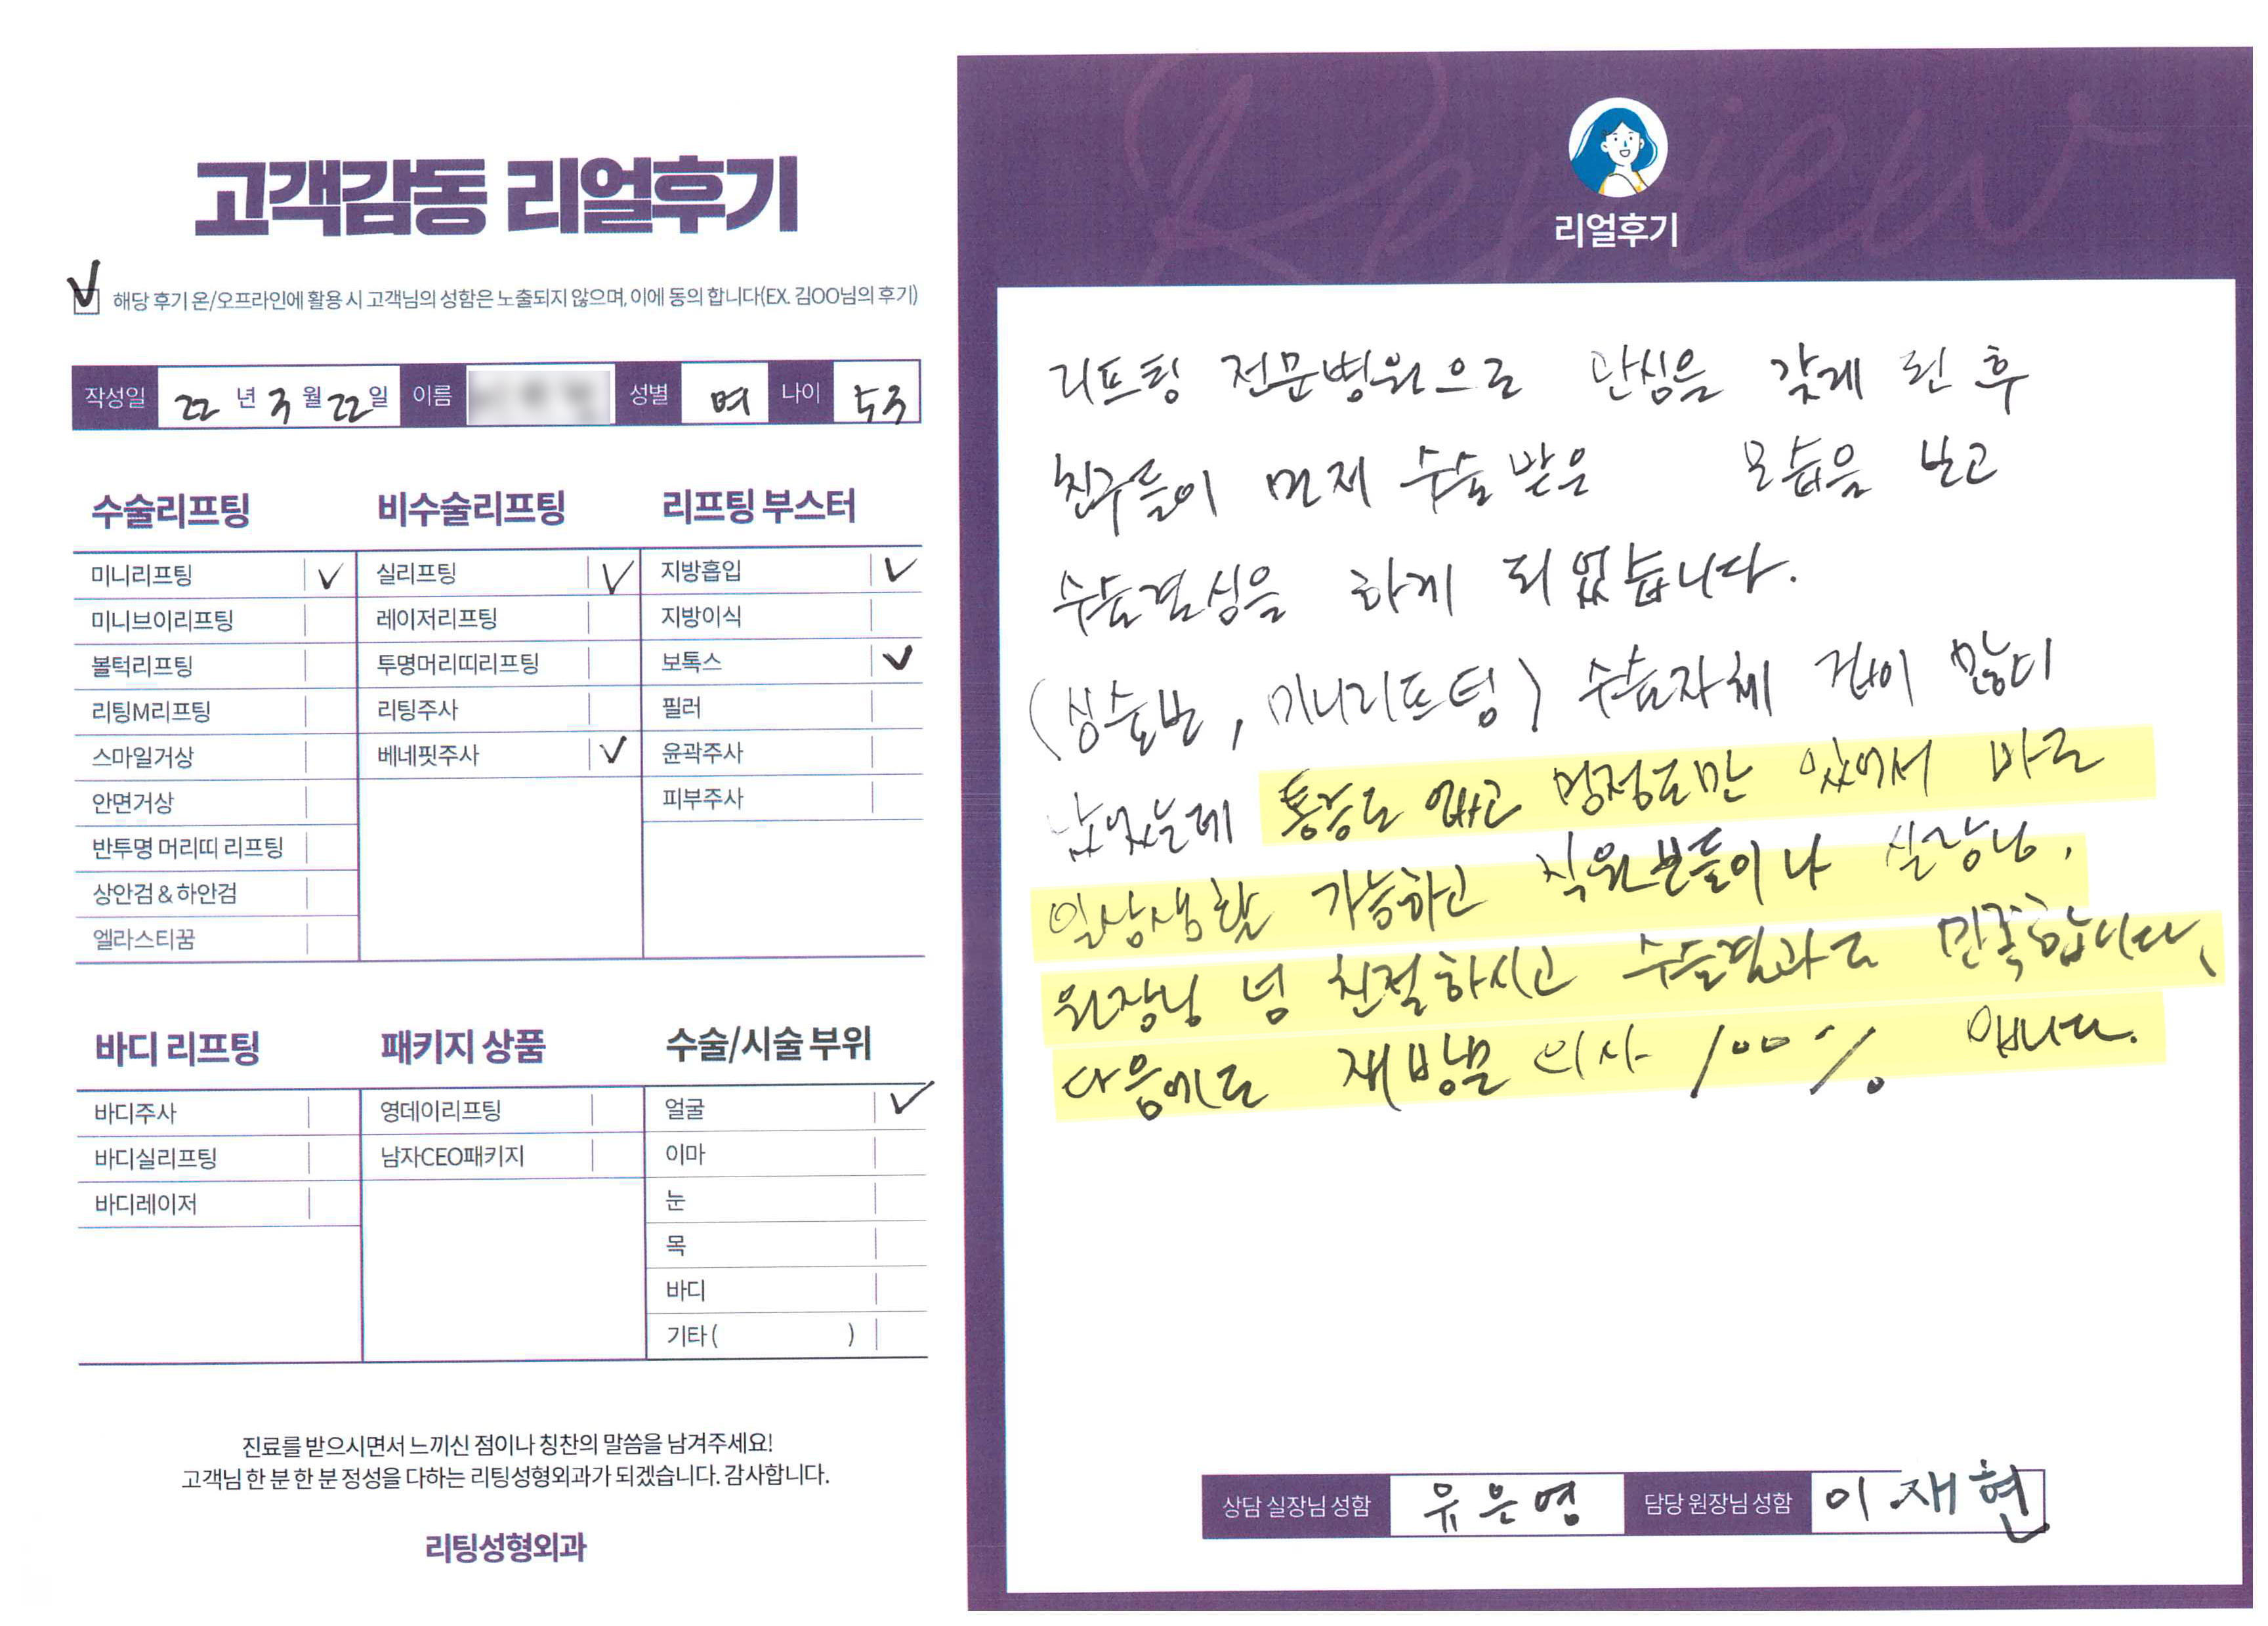 고객감동 리얼후기
해당 후기 온/오프라인에 활용 시 고객님의 성함은 노출되지 않으며, 이에 동의 합니다(EX. 김OO님의 후기)
작성일 22 년 3 월 22 일 이름 성별 여 나이 53
수술리프팅
미니리프팅 ✓
미니브이리프팅
볼턱리프팅
리팅M리프팅
스마일거상
안면거상
반투명 머리띠 리프팅
상안검 & 하안검
엘라스티꿈
비수술리프팅
실리프팅 ✓
레이저리프팅
투명머리띠리프팅
리팅주사
베네핏주사 ✓
리프팅 부스터
지방흡입 ✓
지방이식
보톡스 ✓
필러
윤곽주사
피부주사
바디 리프팅
바디주사
바디실리프팅
바디레이저
패키지 상품
영데이리프팅
남자CEO패키지
수술/시술 부위
얼굴 ✓
이마
눈
목
바디
기타 ( )
진료를 받으시면서 느끼신 점이나 칭찬의 말씀을 남겨주세요!
고객님 한 분 한 분 정성을 다하는 리팅성형외과가 되겠습니다. 감사합니다.
리팅성형외과
Review
리얼후기
리프팅 전문병원으로 관심을 갖게 된 후
친구들이 먼저 수술 받은 모습을 보고
수술결심을 하게 되었습니다.
미니리프팅) 수술자체 겁이 많이
났었는데 통증도 없고 멍정도만 있어서 바로
일상생활 가능하고 직원분들이나 실장님,
원장님 넘 친절하시고 수술결과도 만족합니다,
다음에도 재방문 의사 100% 입니다.
상담 실장님 성함 유은영 담당 원장님 성함 이재현